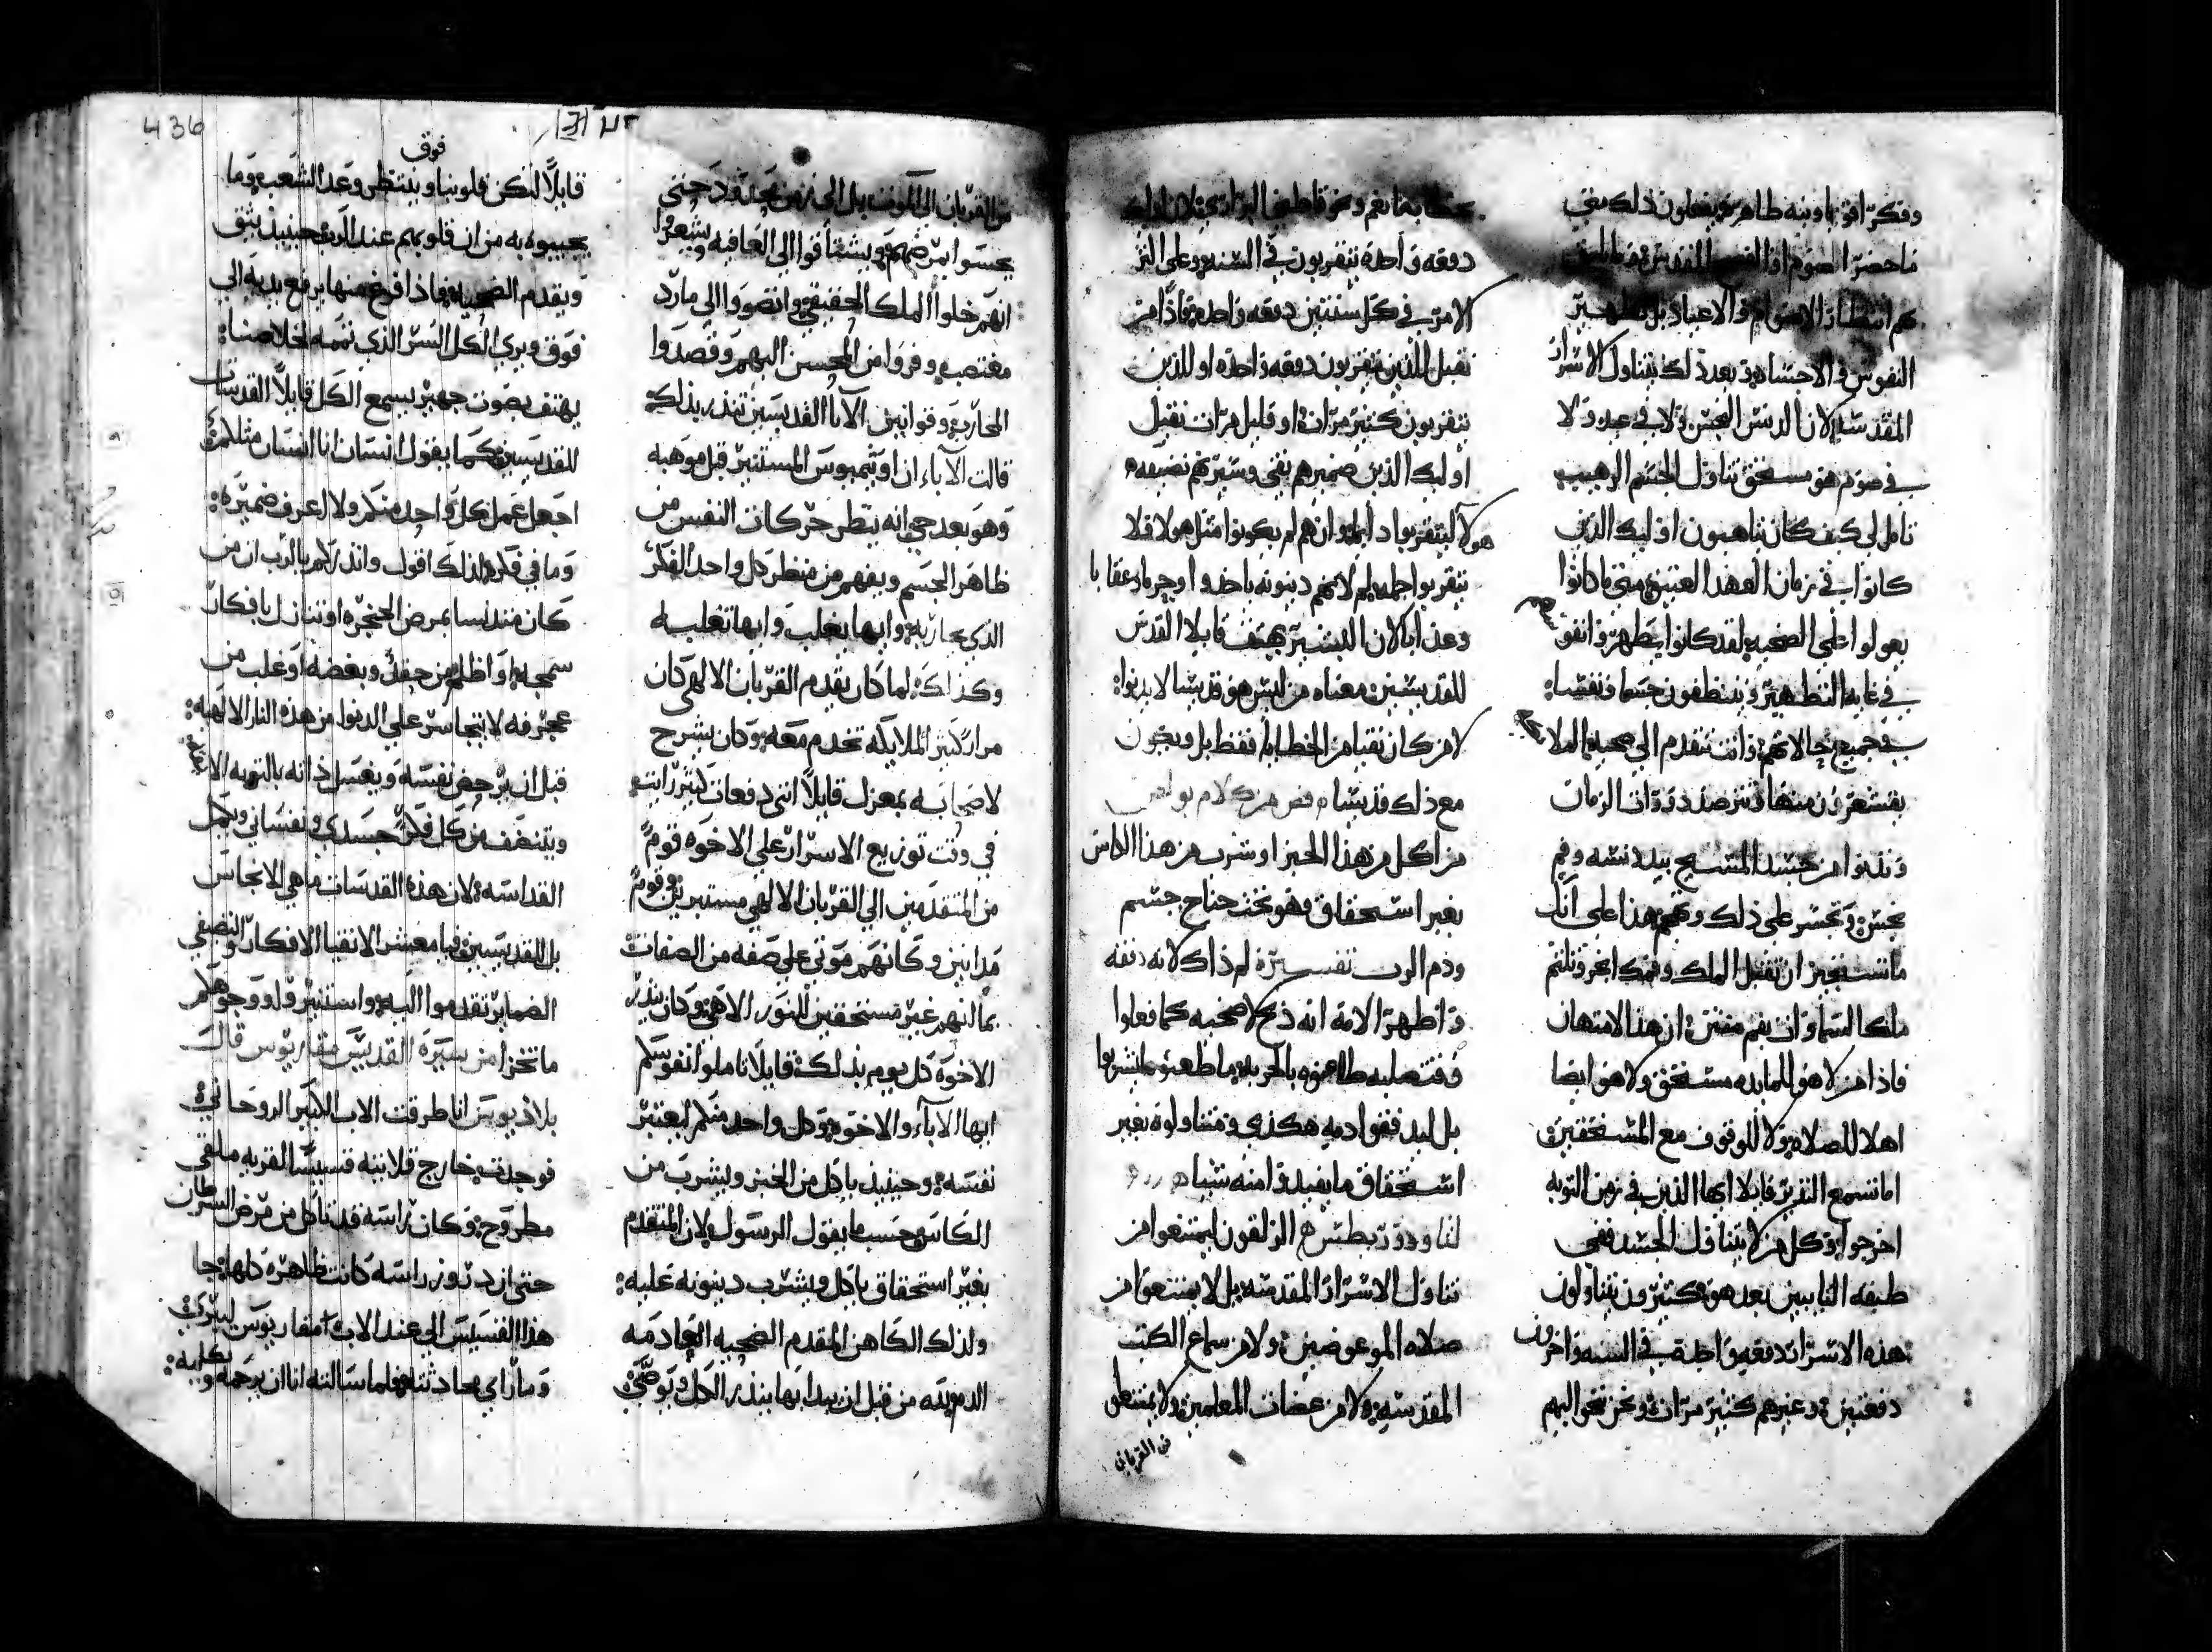 وفكر افواه ونيه طاهره يفعلون ذلك
ما حضر الصوم
هم انتظار الاصوام والاعياد بل تطهير
النفوس والاحتشاد وبعد ذلك يتناول الاسرار
المقدسه لان الدنس النجس ولا في عيد ولا
في صوم هو مستحق تناول الجسم الرهيب
تامل لي كيف كان يتاهبون اوليك الذين
كانوا في زمان العهد العتيق متي ما كانوا
علي الضحيه لقد كانوا يتطهروا
في غاية التطهير ويتنظفون جسما ونفسا:
في جميع حالاتهم: وانت تتقدم الي ضحيه الملايكه
يقشعرون منها وترصد دورات الزمان
وتدنوا من جسد المسيح بيد دنسه وفم
نجس: وتجسر علي ذلك وتهجم هذا علي انك
ما تستجيز ان تقبل الملك وفمك ابخر وتلثم
ملك السما وانت بفم منتن: ان هذا الامتهان
فاذا من لا هو للمايده مستحق ولا هو ايضا
اهلا للصلاه ولا للوقوف مع المستحقين:
اما تسمع النذير قايلا ايها الذين في زمن التوبه
اخرجوا وكل من لا يتناول الجسد ففي
طبقه التايبين بعد هو: كثيرون يتناولون
هذه الاسرار دفعه واحده في السنه واخرون
دفعتين: وغيرهم كثير مرات: ونحن نحو اليهم
دفعه واحده يتقربون في السنه وعلي
الامر في كل سنتين دفعه واحده فاذا من
نقبل للذين يتقربون دفعه واحده او للذين
يتقربون كثير مرات او قليل مرات نقبل
اوليك الذين ضميرهم نقي وسيرتهم نضيفه
هولا ليتقربوا دايما: وان هم لم يكونوا مثل هولا فلا
يتقربوا جمله لم لانهم دينونه ياخدوا وجرما وعقابا
وعذابا لان البشير يهتف قايلا القدس
للقديسين: معناه من ليس هو قديسا لا يدنوا:
لا من كان نقيا من الخطايا فقط بل ويكون
مع ذلك قديسا
من اكل من هذا الخبز او شرب من هذا الكاس
بغير استحقاق فهو تحت جناح جسم
ودم الرب لم ذاك لانه دفعه
واظهر الامه انه ذبح لا ضحيه كما فعلوا
وقت صلبه طاعنوه بالحربه ما طعنوه ليشربوا
بل ليدفقوا دمه هكذي ومتناولوه بغير
استحقاق ما يفيدوا منه شيا
لنا ودو ربطس هم الزلقون ليمتنعوا من
تناول الاسرار المقدسه بل لا يمتنعوا من
صلاه الموعوضين: ولا من سماع الكتب
المقدسه ولا من عضات المعلمين: ولا يمتنعوا
من القربان
من القربان الي الموت بل الي زمن محدود حتي
يحسوا بمرضهم ويشتاقوا الي العافيه ويشعروا
انهم خلوا الملك الحقيقي وانضووا الي مارد
مغتصب وفروا من المحسن اليهم وقصدوا
المحارب: وقوانين الآبا القديسين تنذر بذلك
قالت الآباء ان اوثيميوس المستنير قبل موهبه
وهو بعد حي انه ينظر حركات النفس من
ظاهر الجسم ويفهم من منظر كل واحد الفكر
الذي يحاربه: وايها يغلب وايها تغلبه
وكذلك: لما كان يقدم القربان الالهي كان
مرار كثير الملايكه تخدم معه: وكان يشرح
لاصحابه بمعزل قايلاً انني دفعات كثير رايت
في وقت توزيع الاسرار علي الاخوه قوماً
من المتقدمين الي القربان الالهي مستنيرين وقوماً
مدانين وكانهم موتي علي صفه من الصفات
بما انهم غير مستحقين للنور الاهي: وكان ينذر
الاخوه كل يوم بذلك: قايلا تاملوا نفوسكم
ايها الآباء والاخوه: وكل واحد منكم ليعتبر
نفسه: وحينيذ ياكل من الخبز وليشرب من
الكاس: حسب ما يقول الرسول لان المتقدم
بغير استحقاق ياكل ويشرب دينونه عليه:
ولذلك الكاهن المقدم الضحيه العادمه
الدم بيده من قبل ان يبدا بها ينذر الكل ويوضحي
436
فوق
قايلاً لتكن قلوبنا وينتظر وعد الشعب وما
يجيبوه به من ان قلوبهم عند الرب حينيذ يثق
ويقدم الضحيه: فاذا فرغ منها يرفع يديه الي
فوق ويري الكل السر الذي تممه لخلاصنا:
يهتف بصوت جهير يسمع الكل قايلاً القدسات
للقديسين: كما يقول انسان انا انسان مثلكم:
اجهل عمل كل واحد منكم ولا اعرف ضميره:
وما في فكره لذلك اقول وانذركم بالرب ان من
كان مندنسا بمرض الحنجره او تنازل بافكار
سمجه: او اظلم من حقد وبغضه او غلب من
عجرفه لا يتجاسر علي الدنوا من هذه النار الالهيه:
قبل ان يرحض نفسه ويغسل ذاته بالتوبه
ويتنضف من كل فكر جسدي ونفساني ويكمل
القداسه: لان هذه القدسات ما هي للانجاس
بل للقديسين فيا معشر الانقيا الافكار والنضيفي
الضماير تقدموا اليه: واستنيروا ووجوهكم
ما تخزا من سيرة القديس مقاريوس قال
بلاديوس انا طرقت الاب الكبير الروحاني:
فوجدت خارج قلايته قسيس القريه ملقي
مطروح: وكان راسه قد تاكل من مرض السرطان
حتي ان دروز راسه كانت ظاهره كلها: جا
هذا القسيس الي عند الاب مقاريوس ليبرك
وما راي يحادثته: فلما سالته انا ان يرحمه ويكلمه: